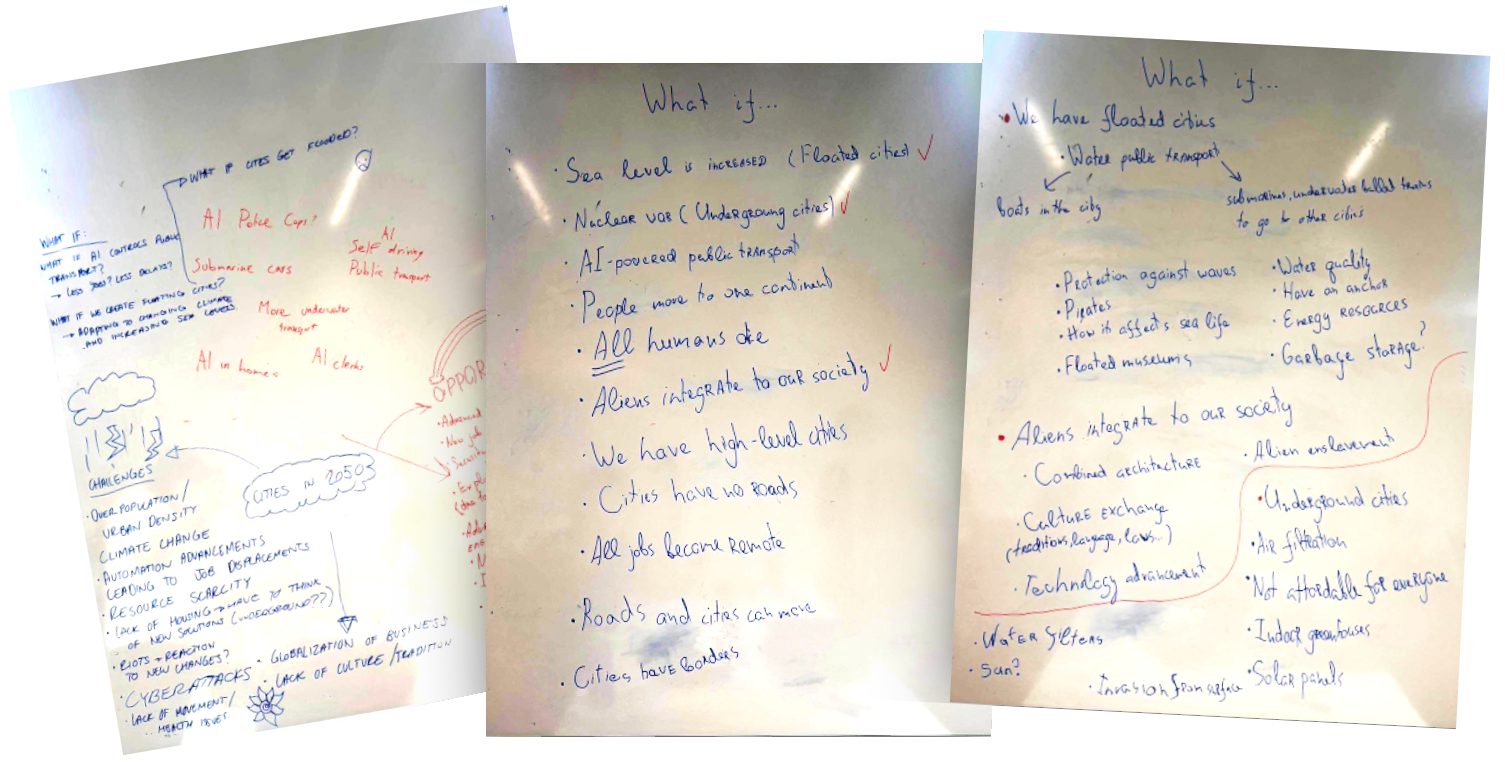 WHAT IF CITES GET FLOODED?
AI Police Cops?
WHAT IF:
WHAT IF AI CONTROLS PUBLIC
TRANSPORT?
→ LESS JOBS? LESS DELAYS?
WHAT IF WE CREATE FLOATING CITIES?
→ ADAPTING TO CHANGING CLIMATE
AND INCREASING SEA LEVELS
AI
Self driving
Public transport
Submarine cars
More underwater
transport
AI in homes
AI clerks
OPPOR
• Advanced
• New job
• Securit
CITIES IN 2050
CHALLENGES
• OVERPOPULATION /
URBAN DENSITY
CLIMATE CHANGE
• AUTOMATION ADVANCEMENTS
LEADING TO JOB DISPLACEMENTS
• RESOURCE SCARCITY
• LACK OF HOUSING → HAVE TO THINK
OF NEW SOLUTIONS (UNDERGROUND??)
• RIOTS → REACTION
TO NEW CHANGES?
• CYBERATTACKS
• LACK OF MOVEMENT /
HEALTH ISSUES
• GLOBALIZATION OF BUSINESS
• LACK OF CULTURE / TRADITION
What if...
• Sea level is INCREASED (Floated cities) ✓
• Nuclear war (Undergroung cities) ✓
• AI-powered public transport
• People move to one continent
• All humans die
• Aliens integrate to our society ✓
• We have high-level cities
• Cities have no roads
• All jobs become remote
• Roads and cities can move
• Cities have borders
What if...
• We have floated cities
• Water public transport
Boats in the city
submarines, underwater bullet trains
to go to other cities
• Protection against waves
• Pirates
• How it affects sea life
• Floated museums
• Water quality
• Have an anchor
• Energy resources
• Garbage storage?
• Aliens integrate to our society
• Combined architecture
• Culture exchange
(traditions, language, laws...)
• Technology advancement
• Alien enslavement
• Underground cities
• Air filtration
• Not affordable for everyone
• Indoor greenhouses
• Solar panels
• Water filters
• Sun?
• Invasion from surface